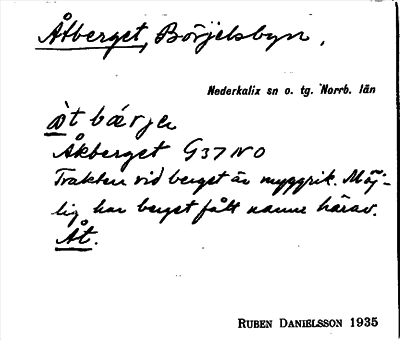 Åtberget, Börjelsbyn.
Nederkalix sn o. tg. Norrb. län
àt bǽrjer
Åkberget G37NO
Trakten vid berget är myggrik. Möj-
lig har berget fått namn härav.
Åt.
RUBEN DANIELSSON 1935